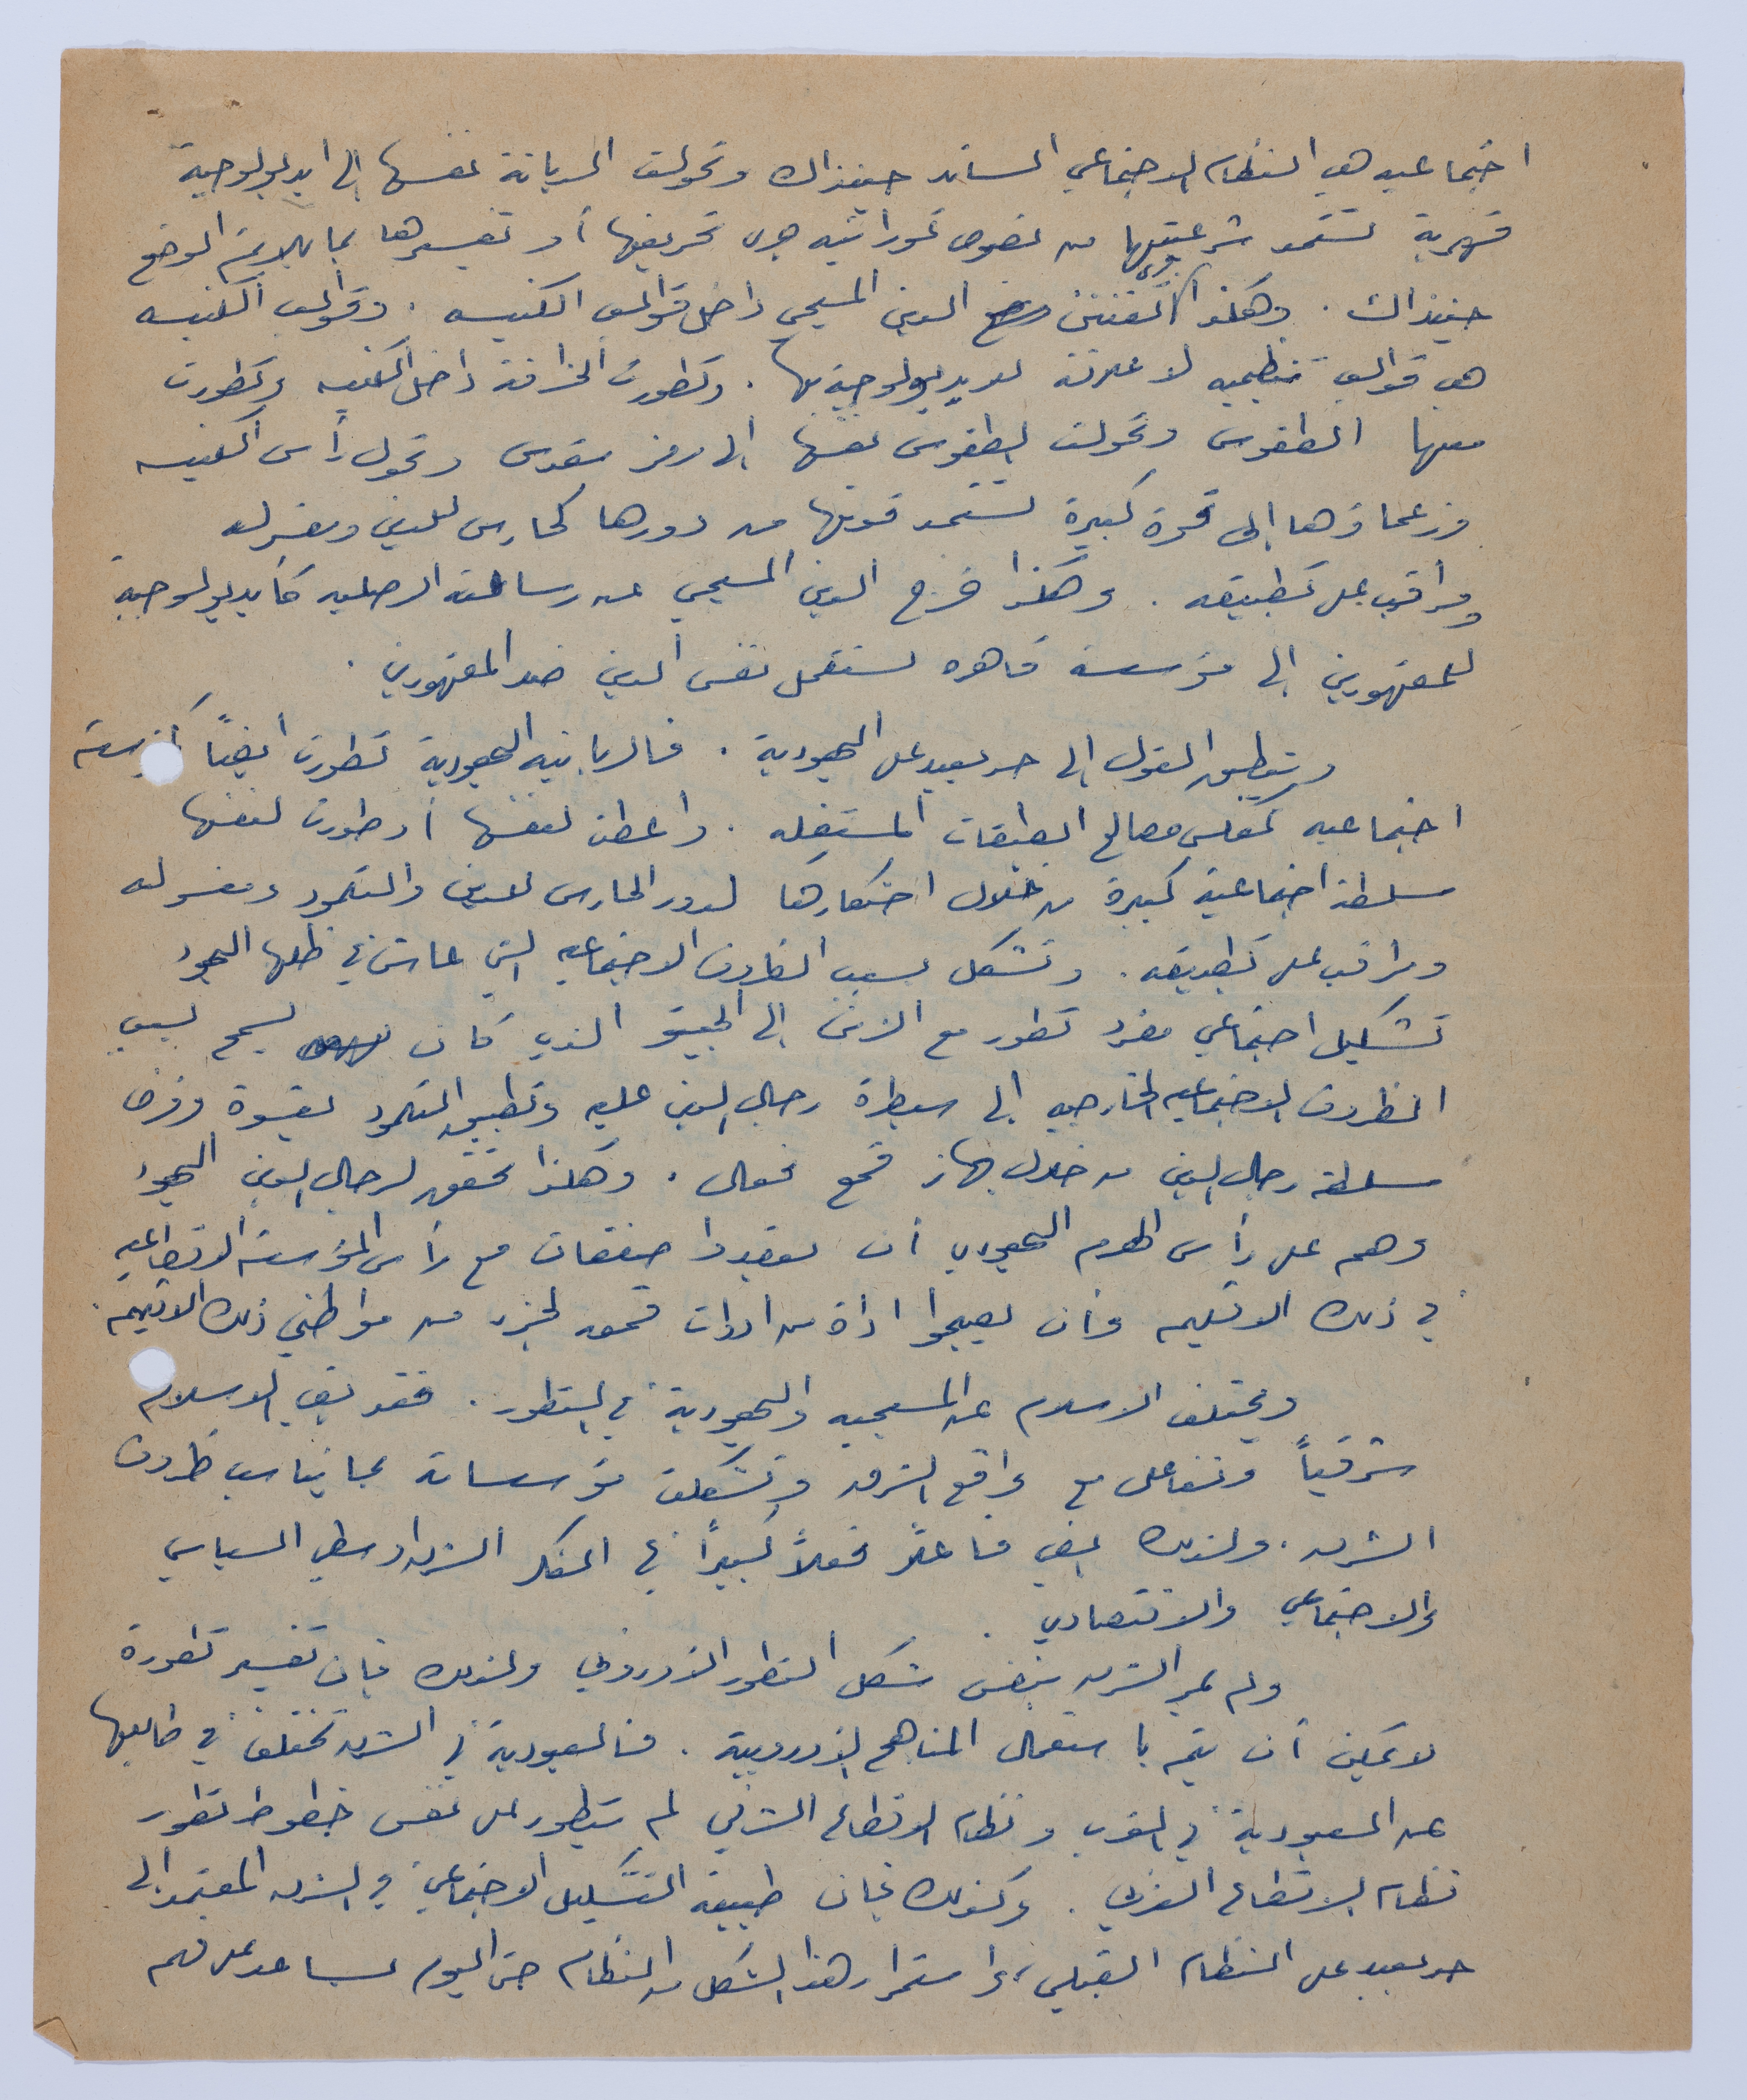 اجتماعيه هي النظام الاجتماعي السائد حينذاك وتحولت الديانة نفسها إلى ايديولوجية
قهرية تستمد شرعيتها من نصوص توراتيه جرى تحريفها أو تفسيرها بما يلائم الوضع
حينذاك . وهكذا الدين المسيحي داخل قوالب الكنيسه . وقوالب الكنيسه
هي قوالب تنظيميه لا علاقة للايديولوجية بها . وتطورت الخرافة داخل الكنيسه وتطورت
معها الطقوس وتحولت الطقوس نفسها الى رمز مقدس وتحول رأس الكنيسه
وزعماؤها إلى قوة كبيرة تستمد قوتها من دورها كحارس للدين ومفسر له
ومراقب على تطبيقه . وهكذا خرج الدين المسيحي عن رسالته الاصليه كأيديولوجية
للمقهورين إلى مؤسسة قاهره تستعمل نفس الدين ضد المقهورين .
وينطبق القول إلى حد بعيد على اليهودية . فالربانيه اليهودية تطورت أيضاً كمؤسسة
اجتماعيه تعكس مصالح الطبقات المستغله . وأعطت نفسها أو طورت لنفسها
سلطة اجتماعية كبيرة من خلال احتكارها لدور الحارس للدين والتلمود ومفسر له
ومراقب على تطبيقه . وتشكل بسبب الظروف الاجتماعيه التي عاش في ظلها اليهود
تشكيل اجتماعي مفرد تطور مع الزمن إلى الجيتو الذي كان يسمح بسبب
الظروف الاجتماعيه الخارجيه إلى سيطرة رجال الدين عليه وتطبيق التلمود بقسوة وفرض
سلطة رجال الدين من خلال جهاز قمع فعال . وهكذا تحقق لرجال الدين اليهود
وهم على رأس الهرم اليهودي أن يعقدوا صفقات مع رأس المؤسسة الاقطاعيه
في ذلك الاقليم وأن يصبحوا اداة من ادوات قمعه لجزء من مواطني ذلك الاقليم .
ويختلف الاسلام عن المسيحيه واليهودية في التطور . فقد بقي الاسلام
شرقياً وتفاعل مع واقع الشرق وتشكلت مؤسساته بما يناسب ظروف
الشرق . ولذلك بقي فاعلاً فعلاً كبيراً في الفكر الشرق اوسطي السياسي
والاجتماعي والاقتصادي .
ولم يمر الشرق بنفس شكل التطور الاوروبي ولذلك فإن تفسير تطوره
لا يمكن أن يتم باستعمال المناهج الاوروبية . فالعبودية في الشرق تختلف في طابعها
عن العبودية في الغرب ونظام الاقطاع الشرقي لم يتطور على نفس خطوط تطور
نظام الاقطاع الغربي . وكذلك فإن طبيعة التشكيل الاجتماعي في الشرق المعتمد إلى
حد بعيد على النظام القبلي ، واستمرار هذا الشكل من النظام حتى اليوم يساعد على فهم